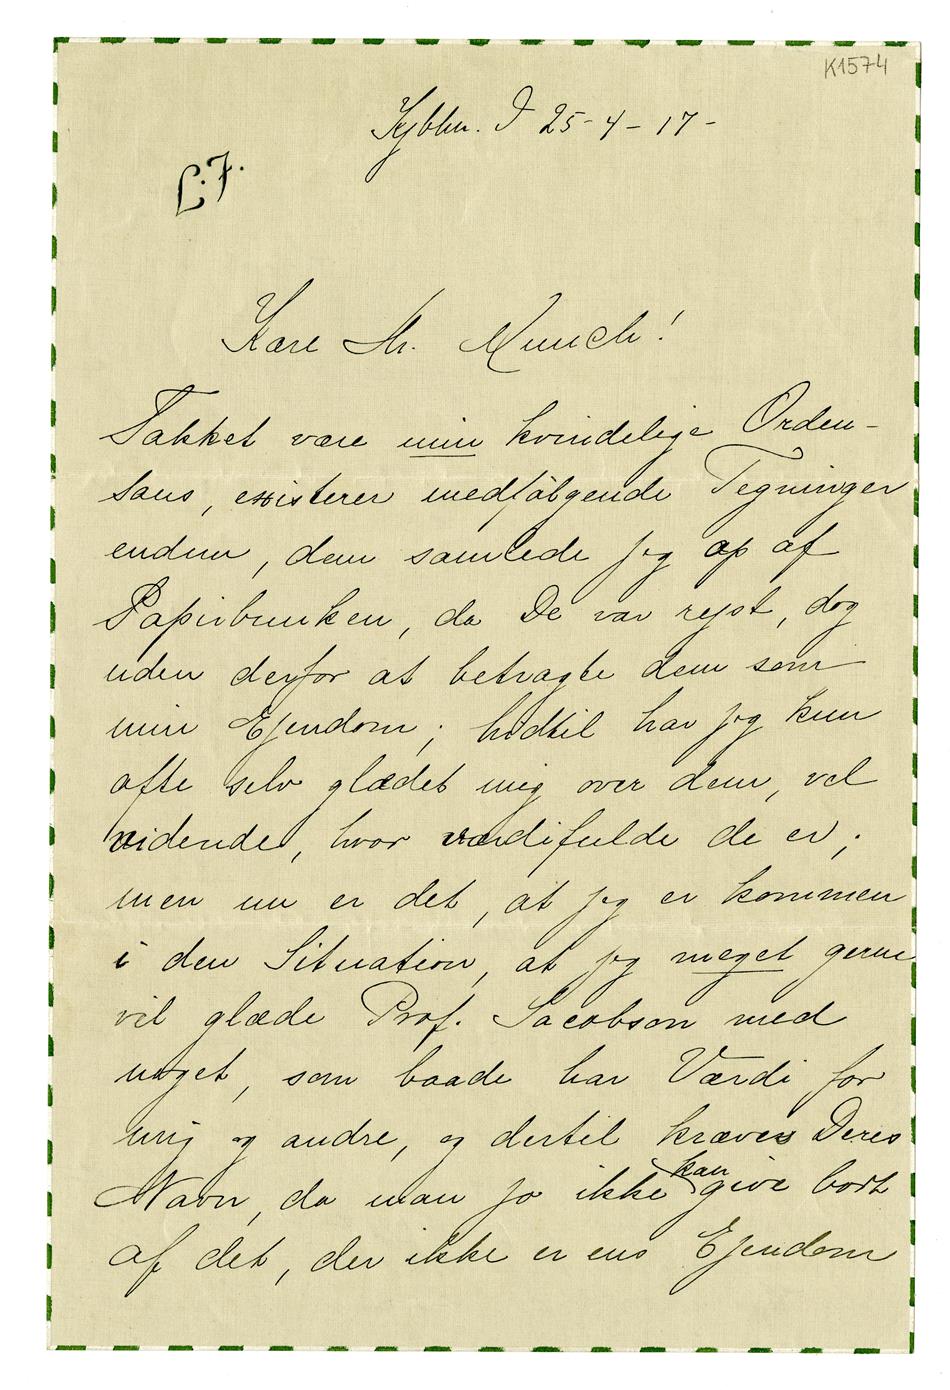 K1574
Kjbhn. Ø 25-4-17-
L.F.
Kære Hr. Munch!
Takket være min kvindelige Orden-
sans, existerer medfølgende Tegninger
endnu, dem samlede jeg op af
Papirbunken, da De var rejst, dog
uden derfor at betragte dem som
min Ejendom; hidtil har jeg kun
ofte selv glædet mig over dem, vel
vidende, hvor værdifulde de er;
men nu er det, at jeg er kommen
i den Situation, at jeg meget gerne
vil glæde Prof. Jacobson med
noget, som baade har Værdi for
mig og andre, og dertil kræves Deres
Navn, da man jo ikke kan give bort
af det, der ikke er ens Ejendom